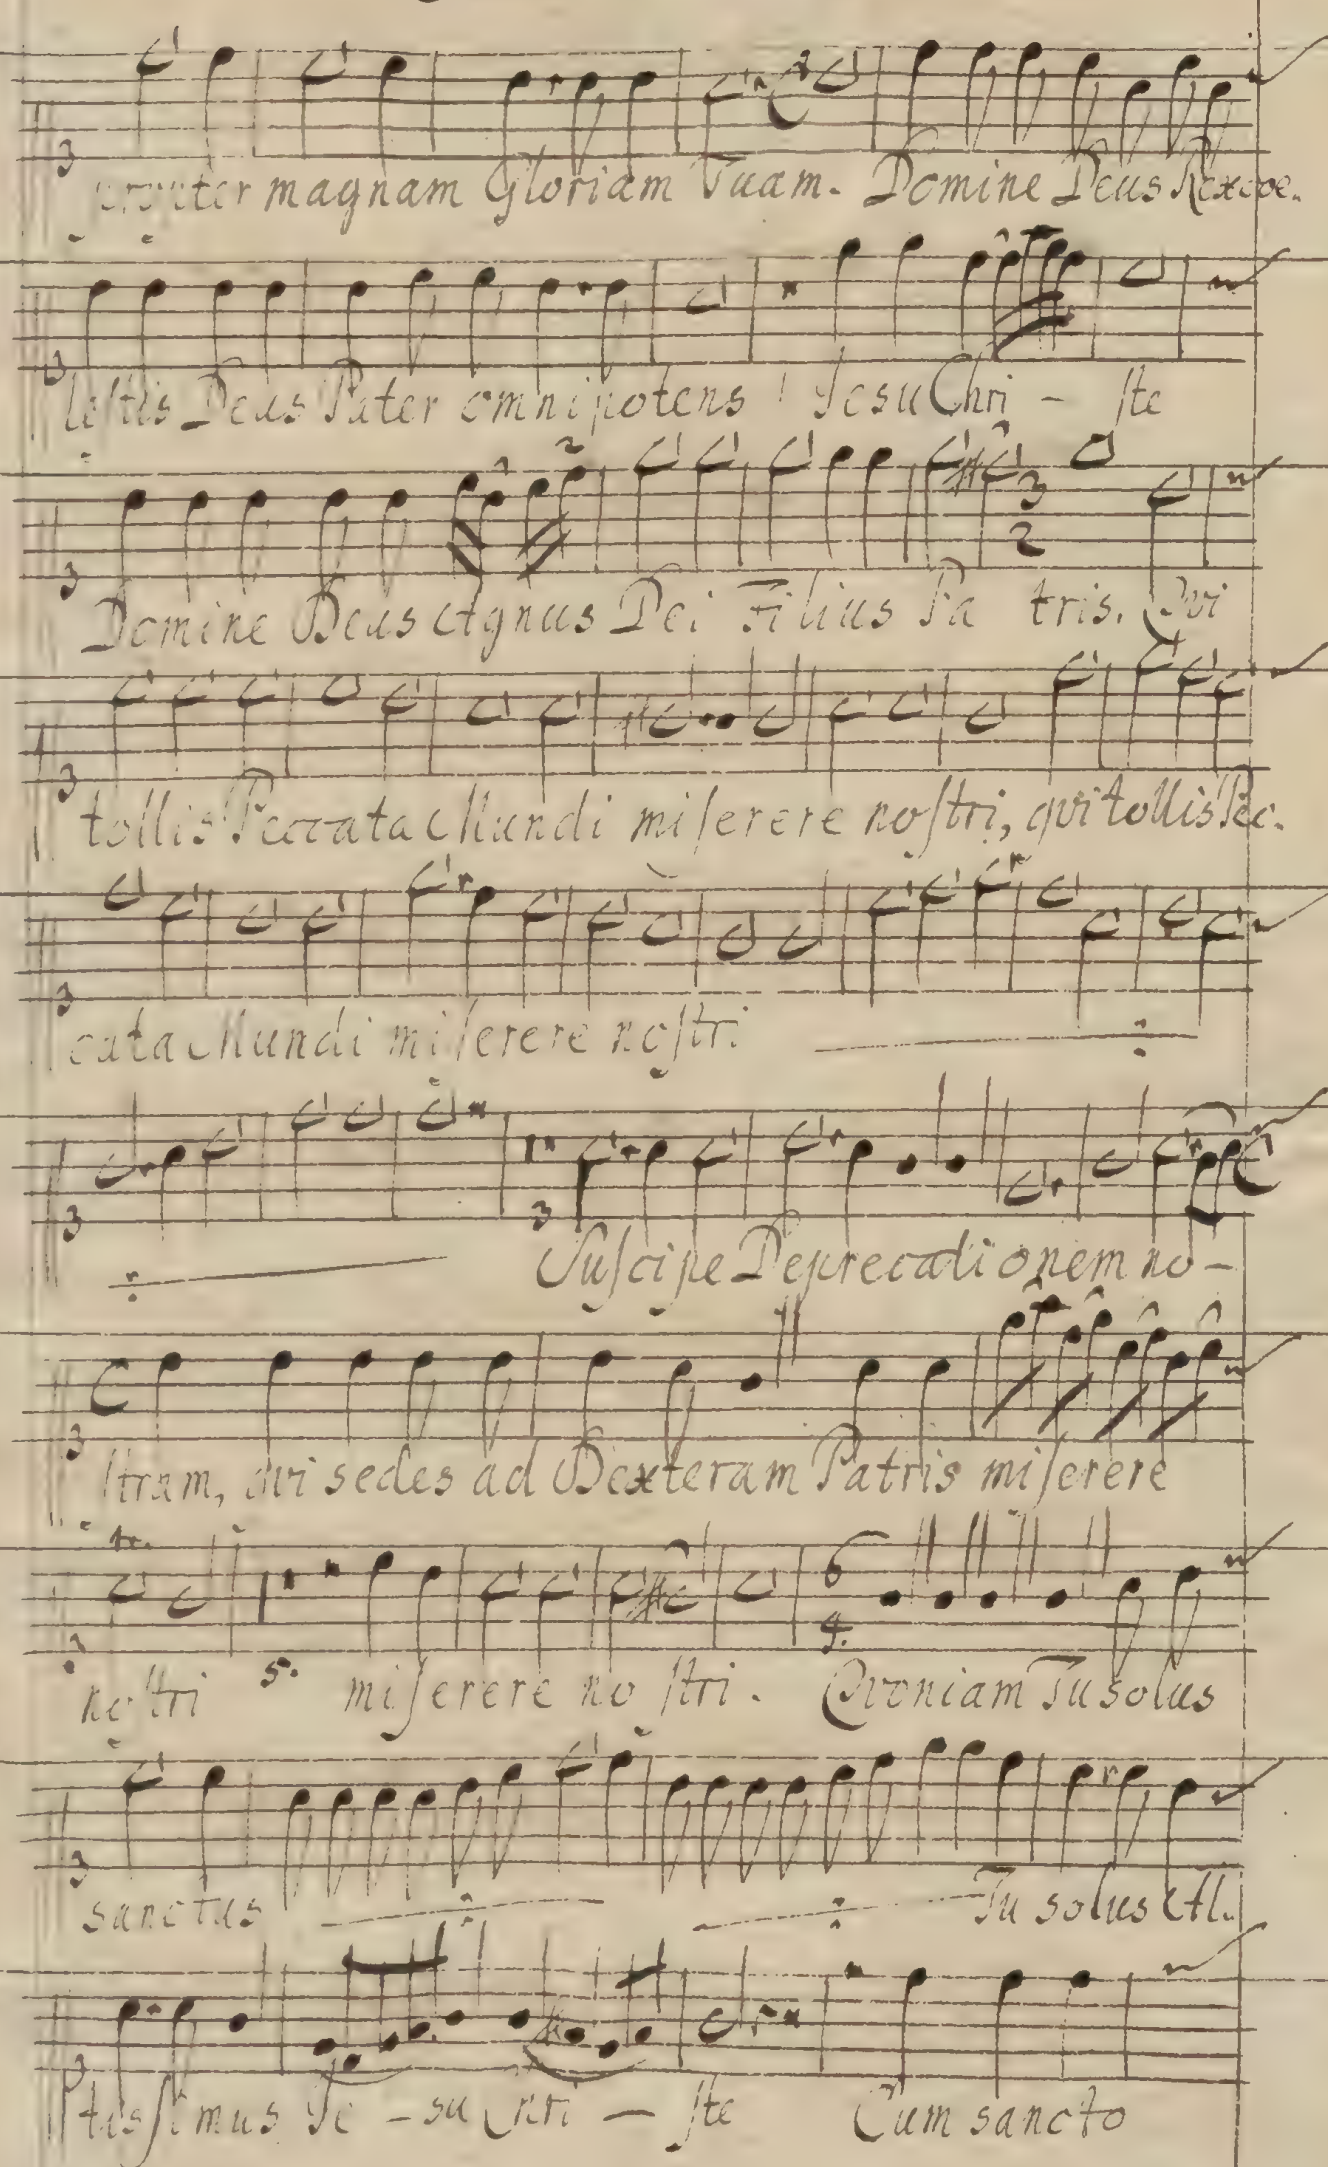 propter magnam Gloriam Tuam. Domine Deus Rex coe-
lestis Deus Pater omnipotens Jesu Chri - ste
Domine Deus Agnus Dei Filius Pa tris. Qvi
tollis Peccata Mundi miserere nostri, qvi tollis Pec-
cata Mundi miserere nostri
Suscipe Deprecationem no-
stram, qvi sedes ad Dexteram Patris miserere
nostri 5. miserere no stri. Qvoniam Tu solus
sanctus Tu solus Al-
tissimus Je - su Chri - ste Cum sancto